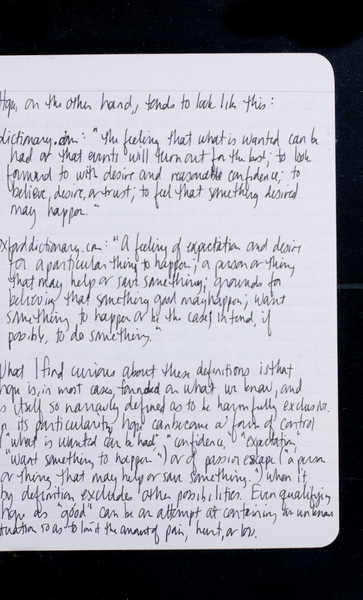 Hope, on the other hand, tends to look like this:
dictionary.com: "the feeling that what is wanted can be
had or that events will turn out for the best; to look
forward to with desire and reasonable confidence; to
believe, desire, or trust; to feel that something desired
may happen."
oxforddictionary.com: "A feeling of expectation and desire
for a particular thing to happen; a person or thing
that may help or save something; grounds for
believing that something good may happen; want
something to happen or be the case; intend, if
possible, to do something."
What I find curious about these definitions is that
hope is, in most cases, founded on what we know, and
is itself so narrowly defined as to be harmfully exclusive.
In its particularity, hope can become a form of control
("what is wanted can be had" "confidence," "expectation,"
"want something to happen") or of passive escape ("a person
or thing that may help or save something.") when it
by definition excludes other possibilities. Even qualifying
hope as "good" can be an attempt at containing an unknown
situation so as to limit the amount of pain, hurt, or loss.